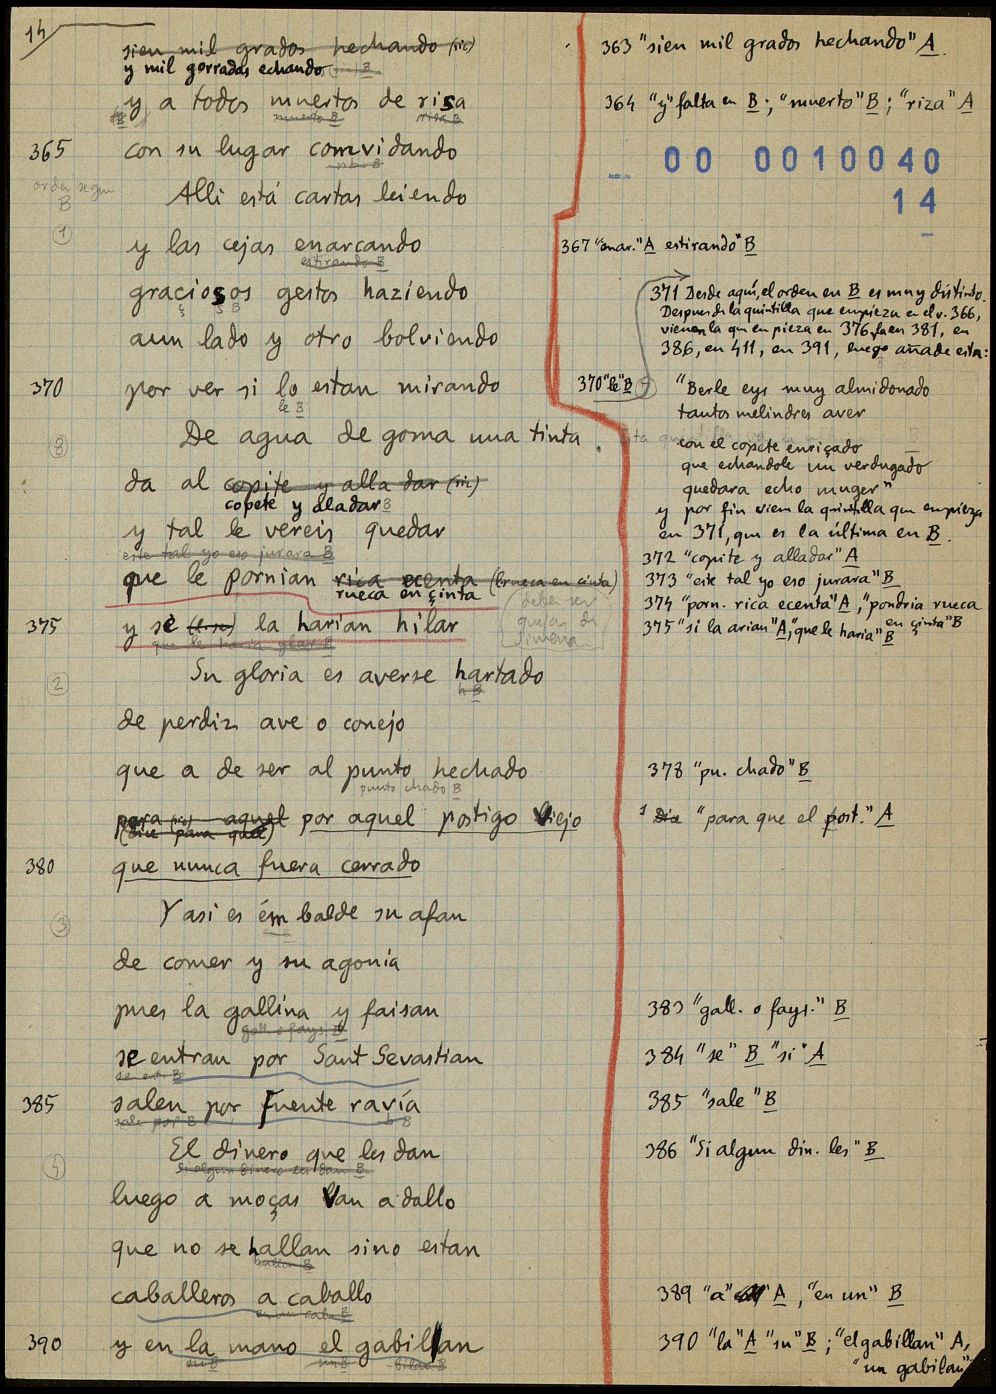 14
sien mil grados hechando (sic)
y mil gorradas echando B
y a todos muertos de risa
muerto B riza B
365 con su luğar comvidando
orden segun B
Alli está cartas leiendo
1
y las cejas enarcando
estirando B
graciosos gestos haziendo
ç ç B
aun lado y otro bolviendo
370 por ver si lo estan mirando
le B
8
De agua de goma una tinta
da al copite y alla dar (sic)
copete y alladar B
y tal le vereis quedar
este tal yo eso jurara B
que le pornian rica ecenta (brueca en cinta)
rueca en çinta
(deben ser quejas de Jimena)
375 y se (l. se) la harian hilar
que le haria B
2
Su gloria es averse hartado
h B
de perdiz ave o conejo
que a de ser al punto hechado
punto chado B
para (sic) aquel por aquel postigo viejo
(dice para que)
380 que nunca fuera cerrado
3
Y asi es ém balde su afan
de comer y su agonia
pues la gallina y faisan
gall. o fays. B
se entran por Sant Sevastian
se ent. B
385 salen por fuente ravía
sale por B b B
El dinero que les dan
Si algun dinero les dan B
luego a moças van a dallo
que no se hallan sino estan
halla B
caballeros a caballo
en un cab. B
390 y en la mano el gabillan
su B un B bilan B
363 "sien mil grados hechando" A.
364 "y" falta en B; "muerto" B; "riza" A
00 0010040
14
367 "enar." A estirando" B
371 Desde aquí, el orden en B es muy distinto.
Despues de la quintilla que empieza en el v. 366,
viene la que empieza en 376, la en 381, en
386, en 411, en 391, luego añade esta:
370 "le" B
"Berle eys muy almidonado
tantos melindres aver
con el copete enriçado
que echandole un verdugado
quedara echo muger"
y por fin viene la quintilla que empieza
en 371, que es la última en B.
372 "copite y alladar" A
373 "este tal yo eso jurara" B
374 "porn. rica ecenta" A, "pondria rueca
en çinta" B
375 "si la arian" A, "que le haria" B
378 "pu. chado" B
1 dice "para que el post." A
383 "gall. o fays." B
384 "se" B "si" A
385 "sale" B
386 "Si algun din. les" B
389 "a" A, "en un" B
390 "la" A "su" B; "el gabillan" A,
"un gabilan"